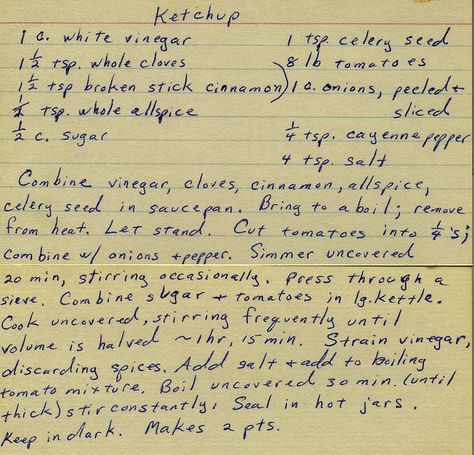 Ketchup
1 c. white vinegar
1 ½ tsp. whole cloves
1 ½ tsp broken stick cinnamon
½ tsp. whole allspice
½ c. sugar
1 tsp. celery seed
8 lb tomatoes
1 c. onions, peeled +
sliced
¼ tsp. cayenne pepper
4 tsp. salt
Combine vinegar, cloves, cinnamon, allspice,
celery seed in saucepan. Bring to a boil; remove
from heat. Let stand. Cut tomatoes into ¼'s;
combine w/ onions + pepper. Simmer uncovered
20 min, stirring occasionally. Press through a
sieve. Combine sugar + tomatoes in lg. kettle.
Cook uncovered, stirring frequently until
volume is halved ~ 1 hr, 15 min. Strain vinegar,
discarding spices. Add salt + add to boiling
tomato mixture. Boil uncovered 30 min. (until
thick) stir constantly. Seal in hot jars.
Keep in dark. Makes 2 pts.